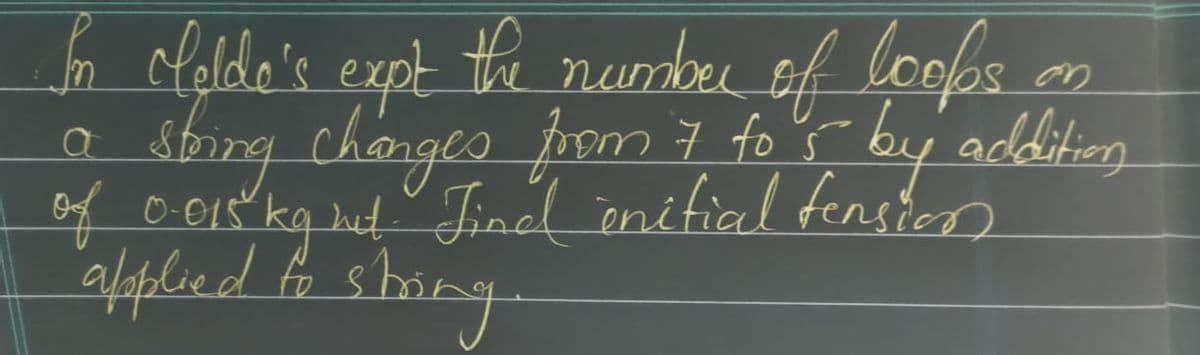 In Melde's expt the number of loops on
a string changes from 7 to 5 by addition
of 0.015 kg wt. Find initial tension
applied to string.